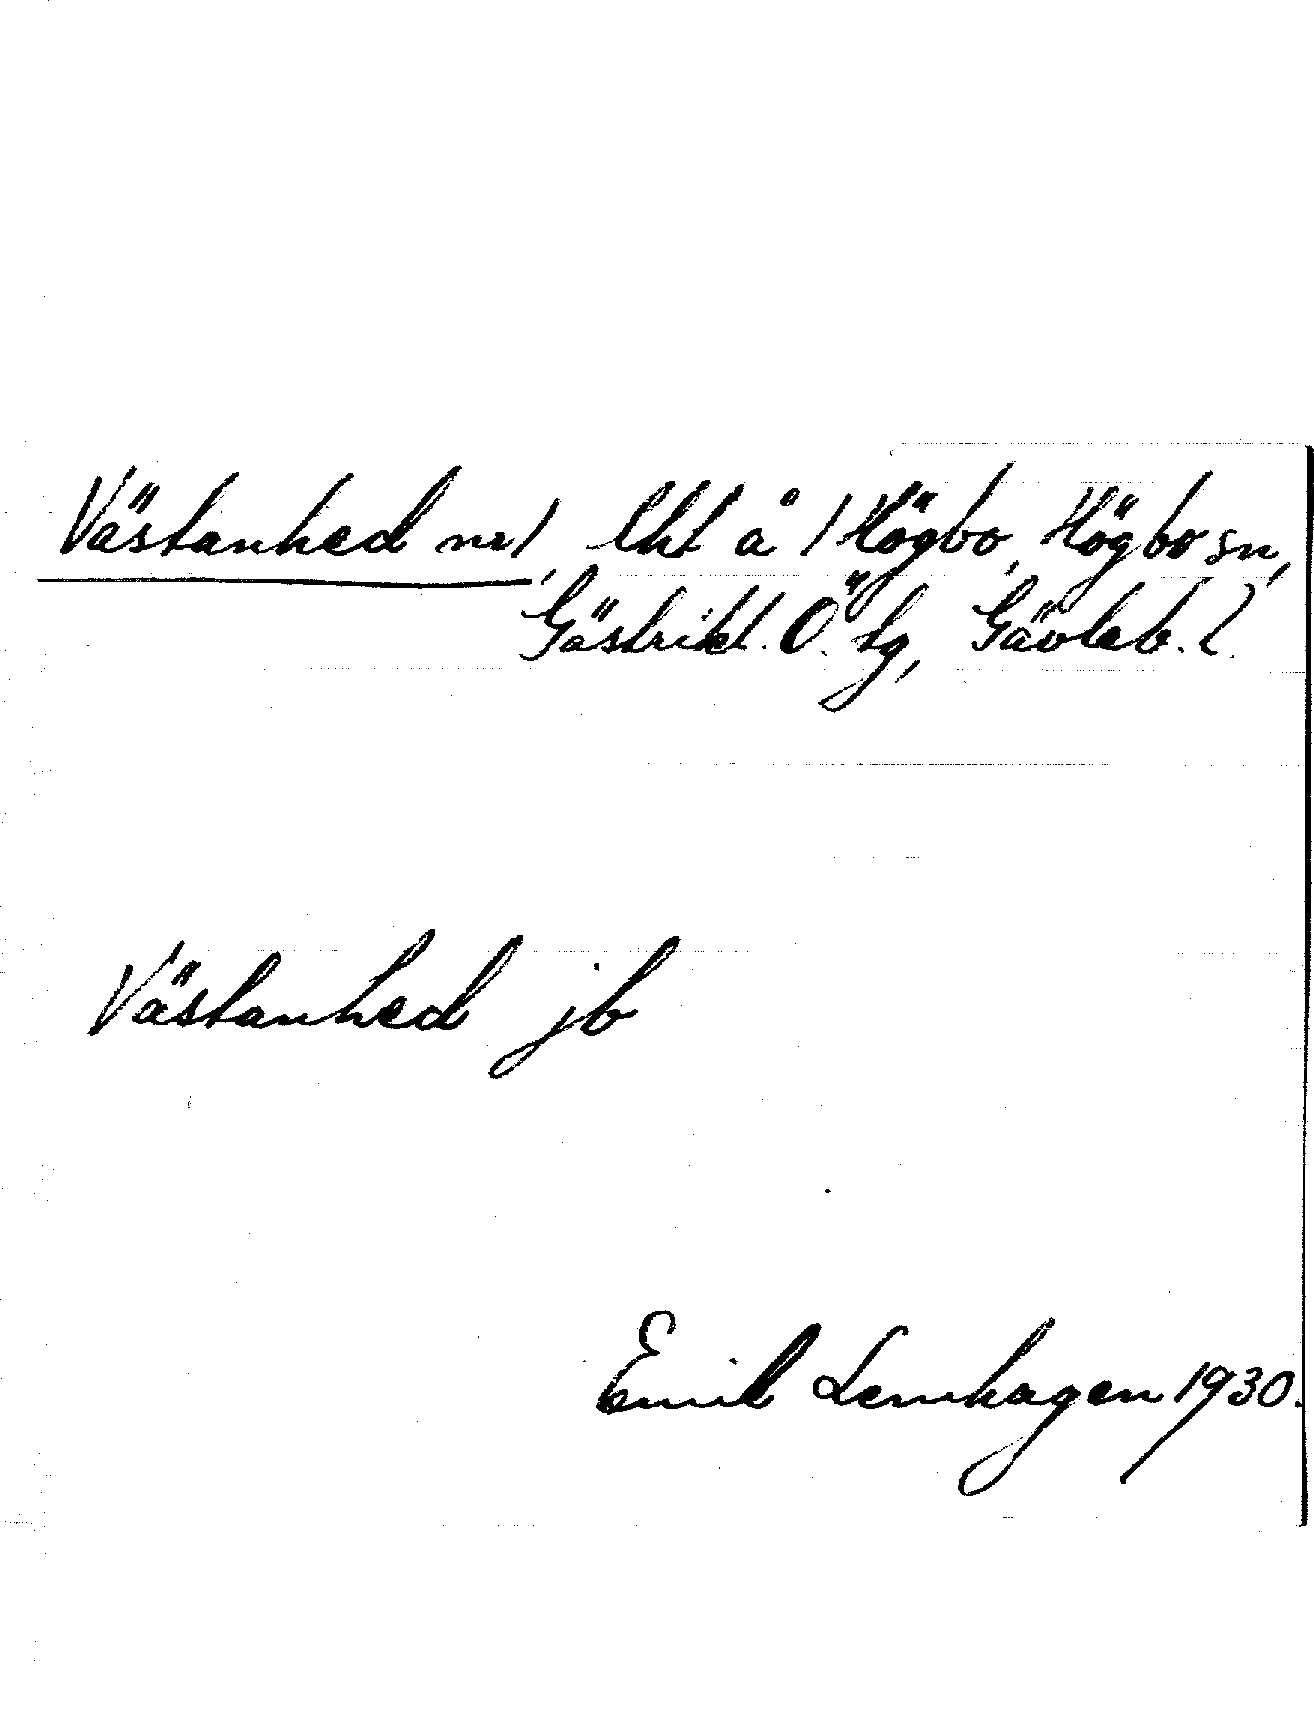 Västanhed nr 1, lht å 1 Högbo, Högbo sn,
Gästrikl. Ö. tg, Gävleb. l.
Västanhed jb
Emil Lemhagen 1930.